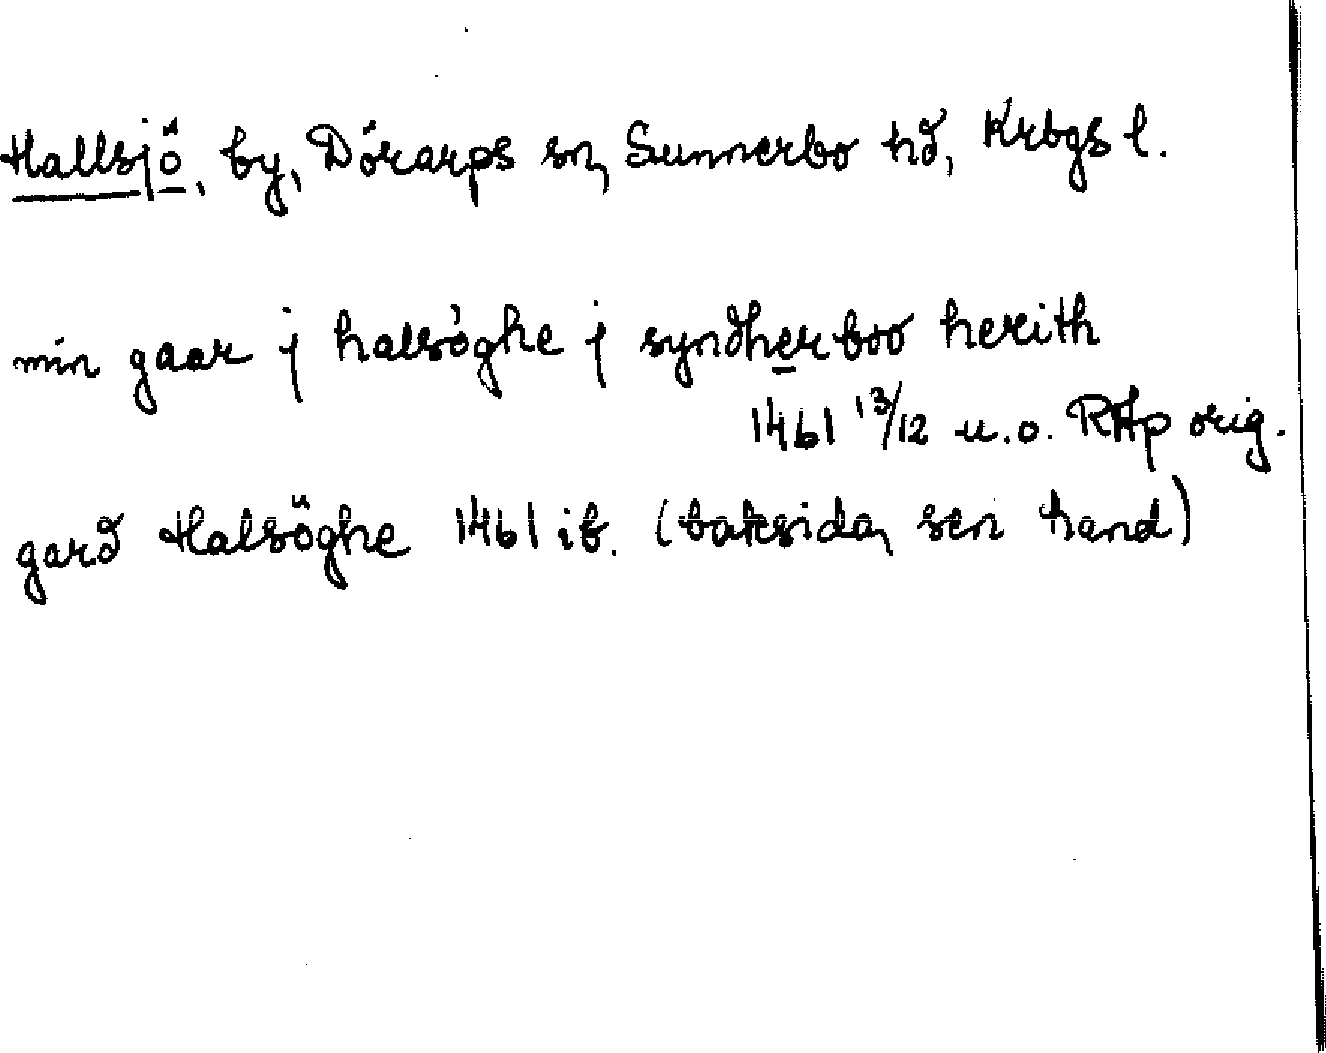 Hallsjö, by, Dörarps sn, Sunnerbo hd, Krbgs l.
min gaar j halsöghe j syndherboo herith
1461 13/12 u.o. RAp orig.
gard Halsöghe 1461 ib. (baksidan, sen hand)